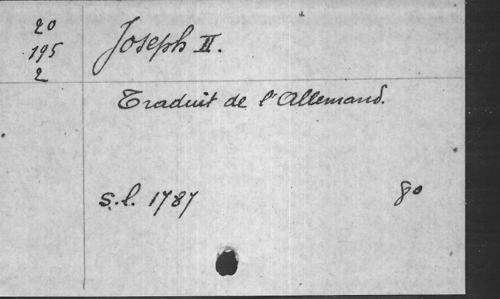 20
195
2
Joseph II.
Traduit de l'Allemand.
s.l. 1787 8o